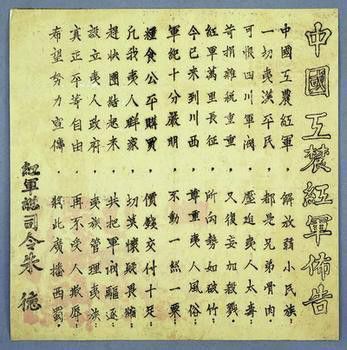 中國工農紅軍佈告
中國工農紅軍，解放弱小民族：
一切夷漢平民，都是兄弟骨肉：
可恨四川軍閥，壓迫夷人太毒：
苛捐雜稅重重，又復妄加殺戮：
紅軍萬里長征，所向勢如破竹：
今已來到川西，尊重夷人風俗：
軍紀十分嚴明，不動一絲一粟：
糧食公平購買，價錢交付十足：
凡我夷人群眾，切莫懷疑畏縮：
趕快團結起來，共把軍閥驅逐：
設立夷人政府，夷族管理夷族：
真正平等自由，再不受人欺辱：
希望努力宣傳，將此廣播西蜀：
紅軍總司令朱德